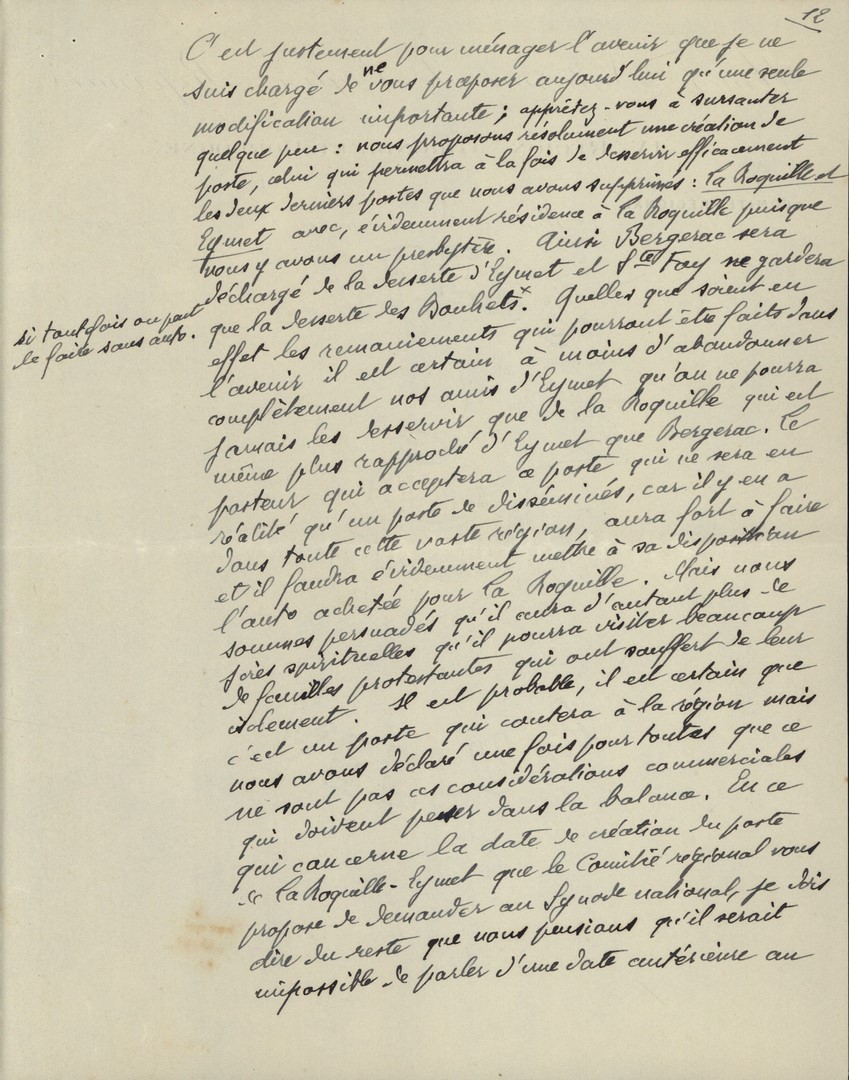 12
C'est justement pour ménager l'avenir que je ne
suis chargé de ne vous proposer aujourd'hui qu'une seule
modification importante ; apprêtez-vous à sursauter
quelque peu : nous proposons résolument une création de
poste, celui qui permettra à la fois de desservir efficacement
les deux derniers postes que nous avons supprimés : La Roquille et
Eymet avec, évidemment résidence à La Roquille puisque
nous y avons un presbytère. Ainsi Bergerac sera
déchargé de la desserte d'Eymet et Ste Foy ne gardera
que la desserte des Bouhets x. Quelles que soient en
si toutefois on peut
le faire sans auto.
effet les remaniements qui pourront être faits dans
l'avenir il est certain à moins d'abandonner
complètement nos amis d'Eymet qu'on ne pourra
jamais les desservir que de la Roquille qui est
même plus rapproché d'Eymet que Bergerac. Le
pasteur qui acceptera ce poste qui ne sera en
réalité qu'un poste de disséminés, car il y en a
dans toute cette vaste région, aura fort à faire
et il faudra évidemment mettre à sa disposition
l'auto achetée pour La Roquille. Mais nous
sommes persuadés qu'il aura d'autant plus de
joies spirituelles qu'il pourra visiter beaucoup
de familles protestantes qui ont souffert de leur
isolement. Il est probable, il est certain que
c'est un poste qui coutera à la région mais
nous avons déclaré une fois pour toutes que ce
ne sont pas ces considérations commerciales
qui doivent peser dans la balance. En ce
qui concerne la date de création du poste
de La Roquille-Eymet que le Comitié régional vous
propose de demander au Synode national, je dois
dire du reste que nous pensions qu'il serait
impossible de parler d'une date antérieure au